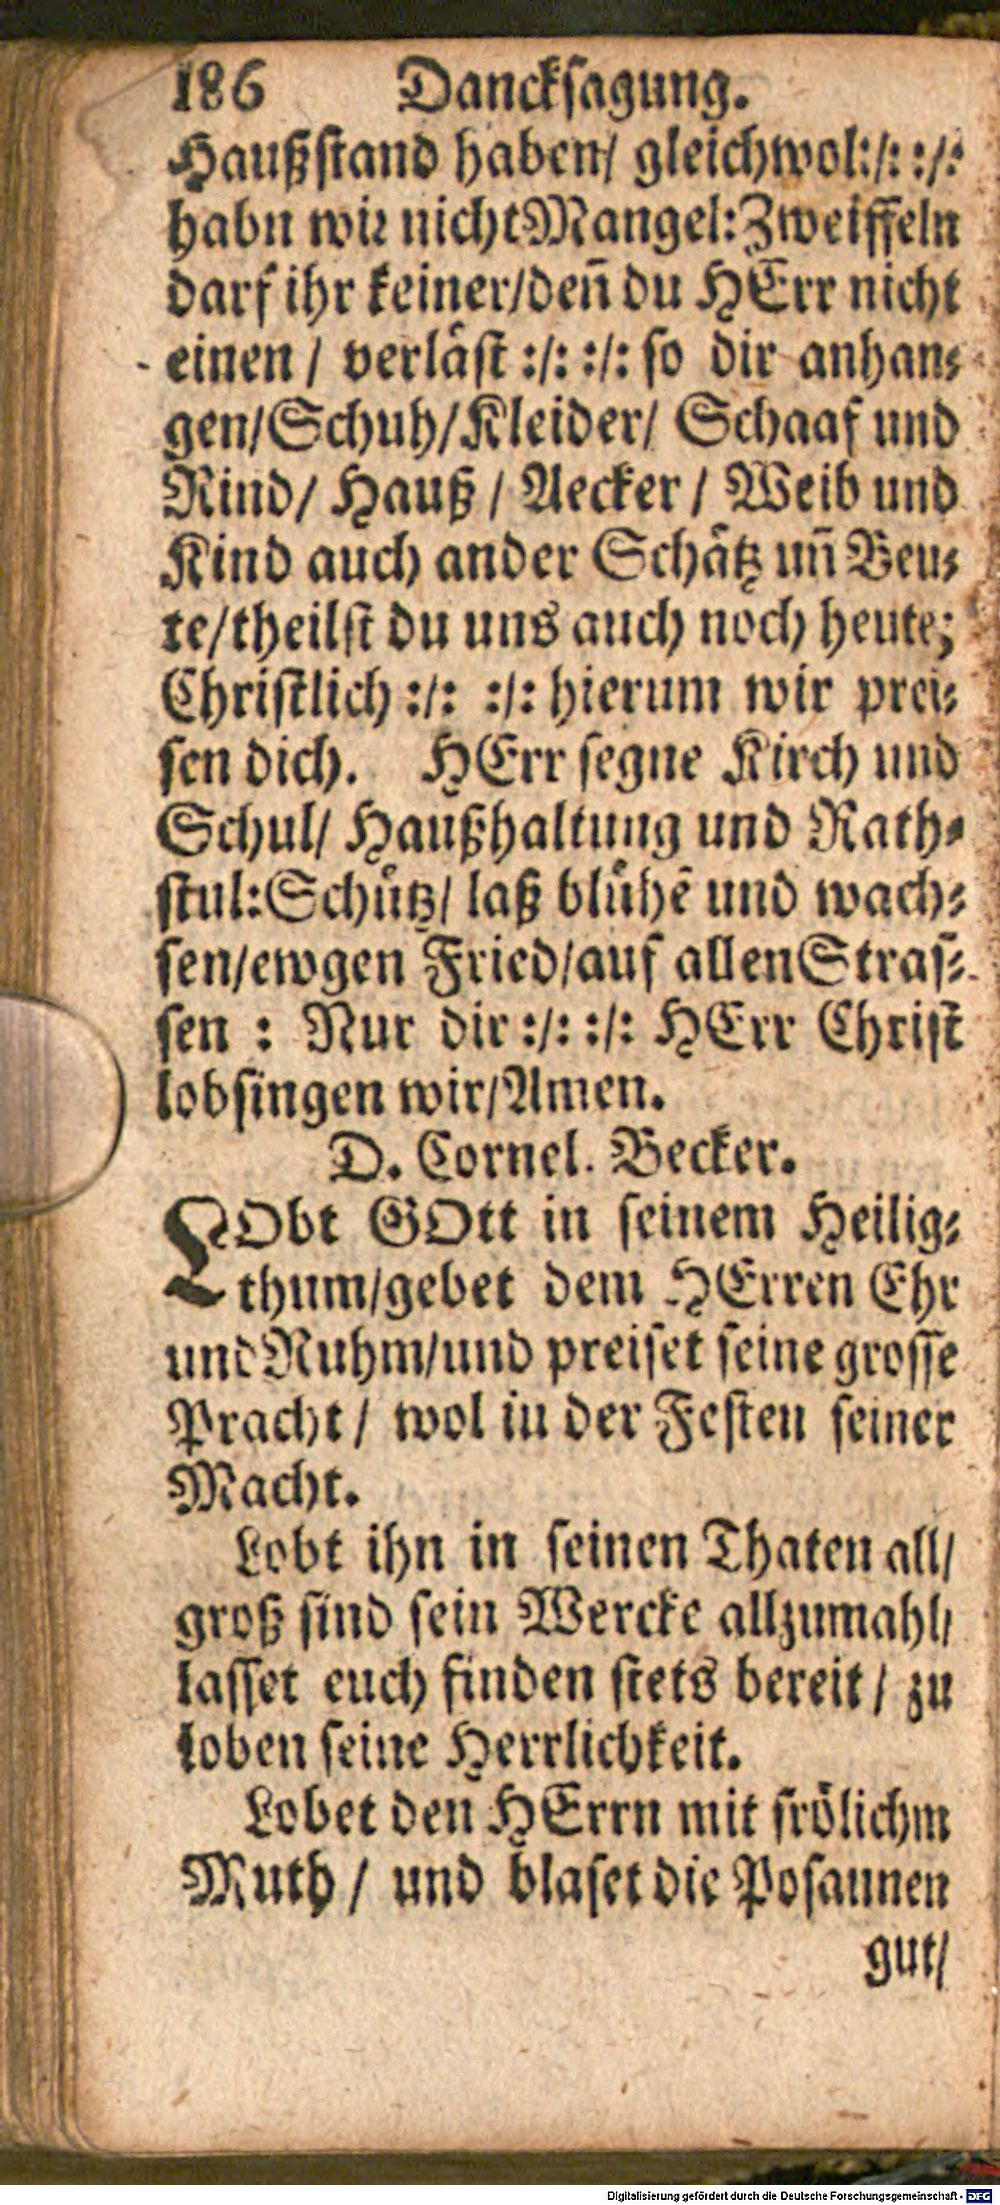 186 Danckſagung.
Haußſtand haben/ gleichwol:/: :/:
habn wir nicht Mangel: Zweiffeln
darf ihr keiner/ deñ du HErr nicht
einen / verläſt :/: :/: ſo dir anhan-
gen/ Schuh/ Kleider/ Schaaf und
Rind/ Hauß / Aecker / Weib und
Kind auch ander Schätz uñ Beu-
te/ theilſt du uns auch noch heute;
Chriſtlich :/: :/: hierum wir prei-
ſen dich. HErr ſegne Kirch und
Schul/ Haußhaltung und Rath-
ſtul: Schütz/ laß blühẽ und wach-
ſen/ ewgen Fried/ auf allen Straſ-
ſen : Nur dir :/: :/: HErr Chriſt
lobſingen wir/ Amen.
D. Cornel. Becker.
LObt GOtt in ſeinem Heilig-
thum/ gebet dem HErren Ehr
und Ruhm/ und preiſet ſeine groſſe
Pracht / wol in der Feſten ſeiner
Macht.
Lobt ihn in ſeinen Thaten all/
groß ſind ſein Wercke allzumahl/
laſſet euch finden ſtets bereit / zu
loben ſeine Herrlichkeit.
Lobet den HErrn mit frölichm
Muth / und blaſet die Poſaunen
gut/
Digitalisierung gefördert durch die Deutsche Forschungsgemeinschaft - DFG